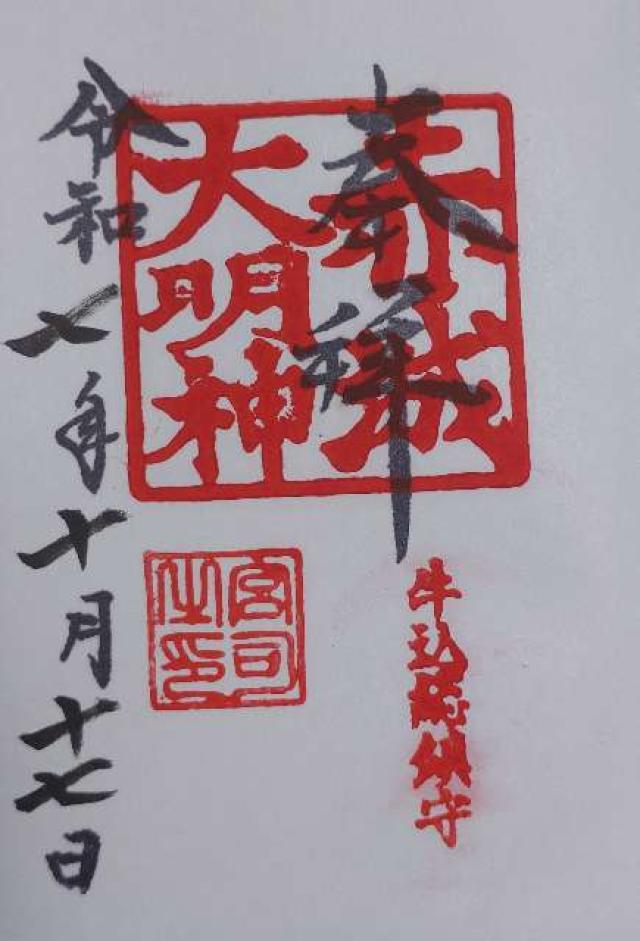 奉拝
赤城
大明神
牛込総鎮守
宮司
之印
令和七年十月十七日